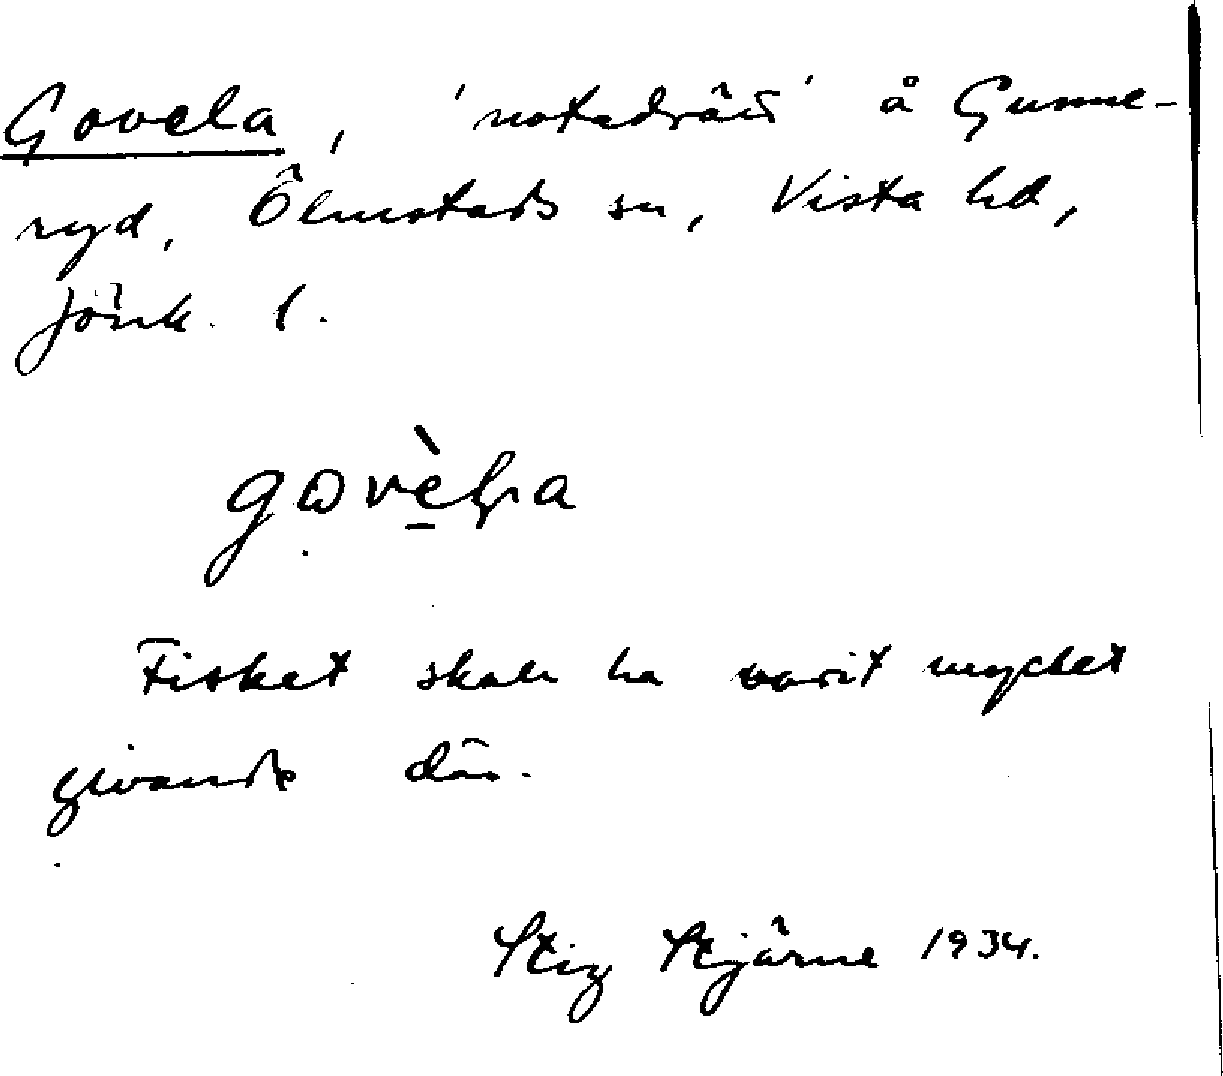 Govela, 'notadrät' å Gunne-
ryd, Ölmstads sn, Vista hd,
Jönk. l.
Fisket skall ha varit mycket
givande där.
Stig Stjärne 1934.